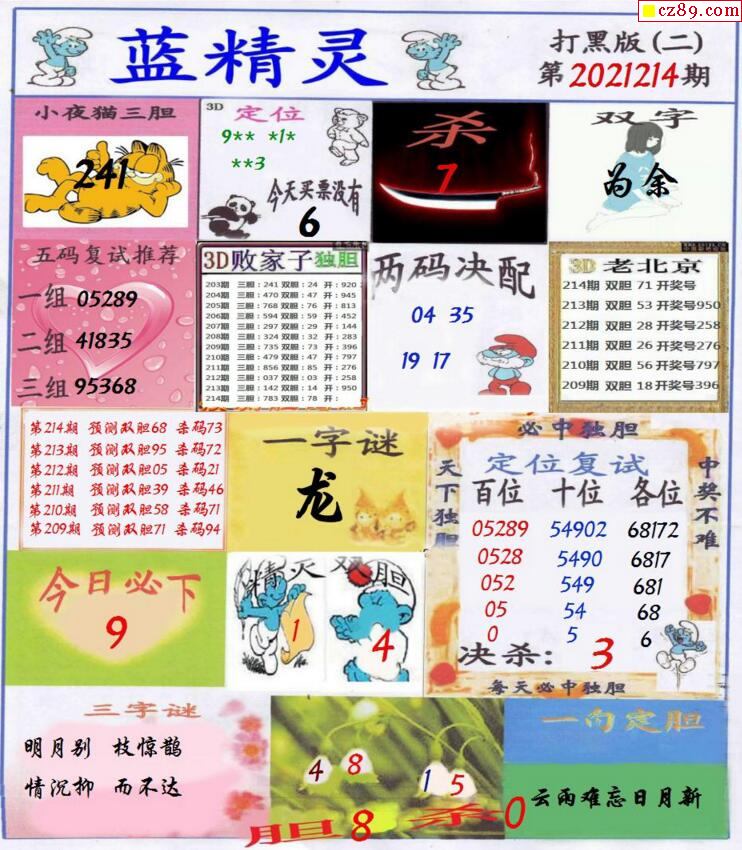 cz89.com
蓝精灵
打黑版(二)
第2021214期
小夜猫三胆
241
3D 定位
9** *1*
**3
今天买票没有
6
杀
7
双字
为余
五码复试推荐
一组 05289
二组 41835
三组 95368
3D败家子独胆
203期 三胆：241 双胆：24 开：920
204期 三胆：470 双胆：47 开：945
205期 三胆：768 双胆：76 开：813
206期 三胆：594 双胆：59 开：452
207期 三胆：297 双胆：29 开：144
208期 三胆：324 双胆：32 开：283
209期 三胆：735 双胆：73 开：396
210期 三胆：479 双胆：47 开：797
211期 三胆：856 双胆：85 开：276
212期 三胆：037 双胆：03 开：258
213期 三胆：142 双胆：14 开：950
214期 三胆：783 双胆：78 开：
两码决配
04 35
19 17
3D 老北京
214期 双胆 71 开奖号
213期 双胆 53 开奖号950
212期 双胆 28 开奖号258
211期 双胆 26 开奖号276
210期 双胆 56 开奖号797
209期 双胆 18 开奖号396
第214期 预测双胆68 杀码73
第213期 预测双胆95 杀码72
第212期 预测双胆05 杀码21
第211期 预测双胆39 杀码46
第210期 预测双胆58 杀码71
第209期 预测双胆71 杀码94
一字谜
龙
必中独胆
天下独胆
中奖不难
定位复试
百位 十位 各位
05289 54902 68172
0528 5490 6817
052 549 681
05 54 68
0 5 6
决杀： 3
每天必中独胆
今日必下
9
精灵双胆
1
4
三字谜
明月别 枝惊鹊
情沉抑 而不达
4 8
1 5
胆8 杀0
一句定胆
云雨难忘日月新